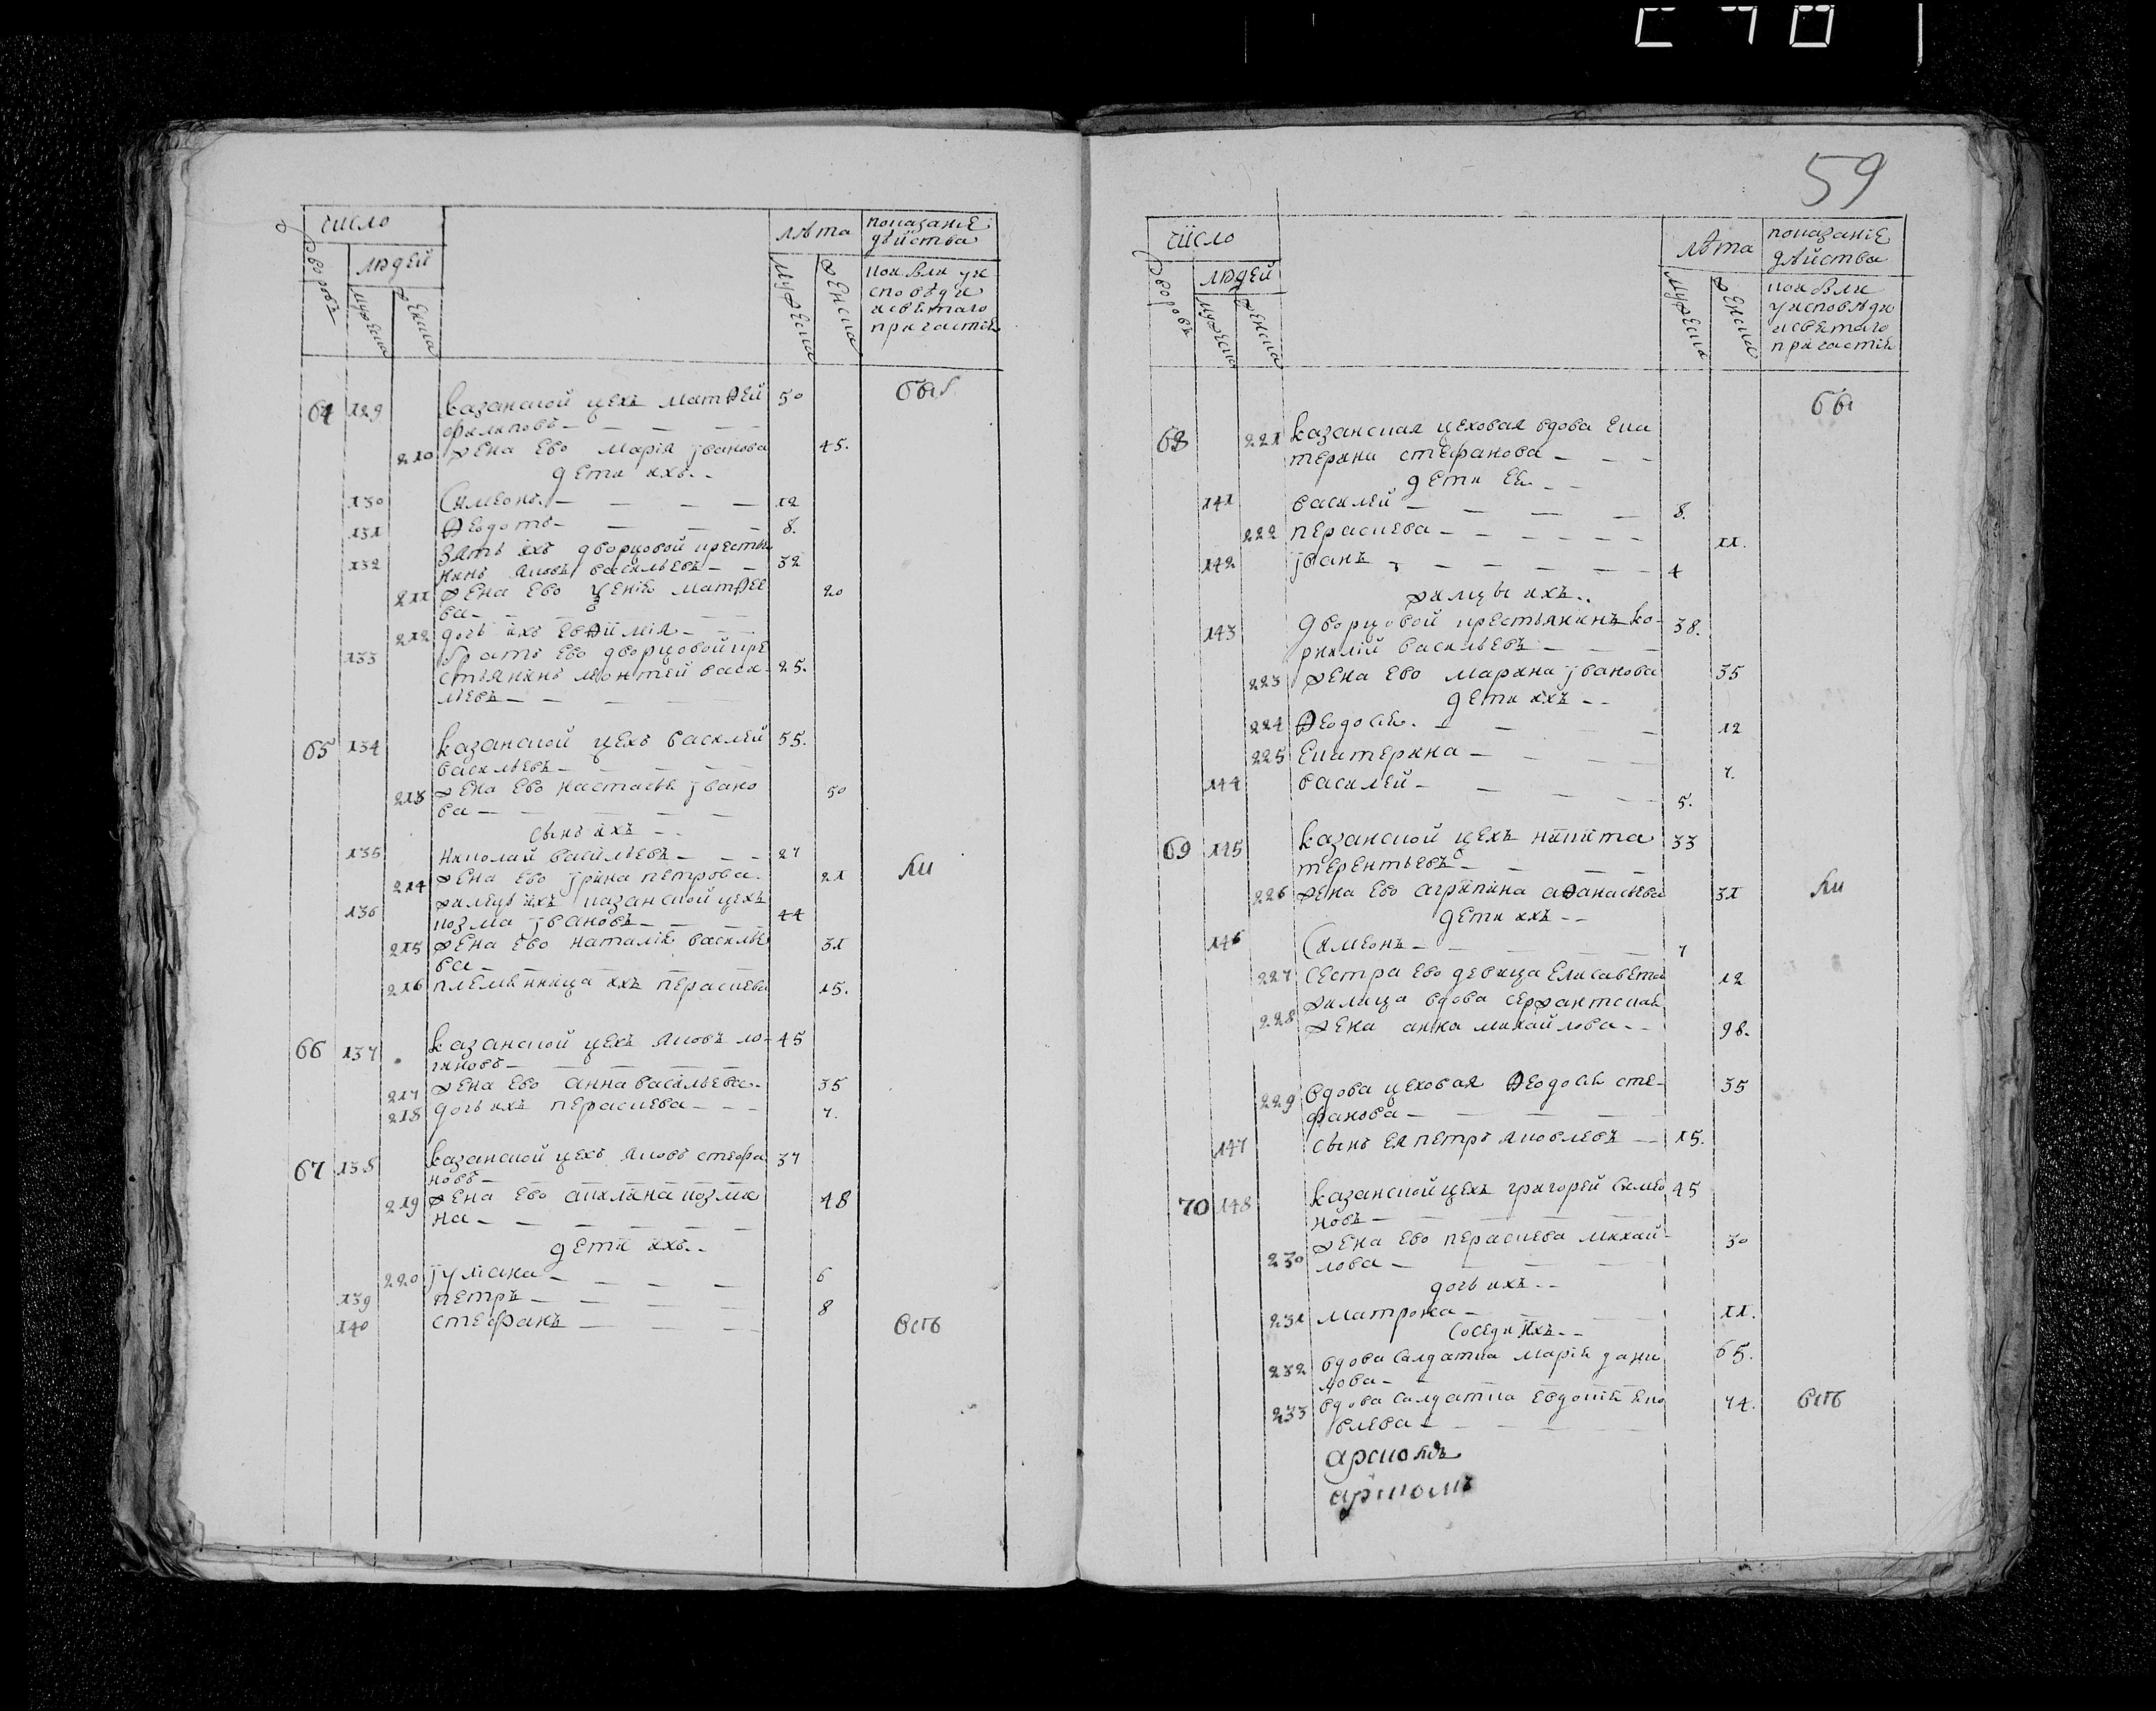 число
дворовъ
людей
мужеска
женска
лѣта
мужеска
женска
показаніе
дѣйства
кои были у и
споведи
и святаго
причастія
64 129 казанской цехъ матѳей 50 был
филиповъ
210 жена ево марія іванова 45.
дети ихъ
130 Симеонъ 12
131 Ѳедотъ 8.
зять ихъ дворцовой крестья
132 нинъ яковъ васильевъ 32
211 жена ево матѳее 20
ва
212 дочь ихъ евѳимія
133 братъ ево дворцовой кре
стьянинъ васи 25.
льевъ
65 134 казанской цехъ василей 55.
васильевъ
213 жена ево настасья івано 50
ва
сынъ ихъ
135 николай васильевъ 27
214 жена ево ірина петрова 21 ли
жилецъ ихъ казанской цехъ
136 козма івановъ 44
215 жена ево наталія василье 31
ва
216 племянница ихъ пераскева 15.
66 137 казанской цехъ яковъ ло- 45
гиновъ
217 жена ево анна васильева 35
218 дочь ихъ пераскева 7.
67 138 казанской цехъ яковъ стефа 37
новъ
219 жена ево акилина козми 48
на
дети ихъ
220 іулиана 6
139 петръ 8
140 стефанъ всѣ
59
число
дворовъ
людей
мужеска
женска
лѣта
мужеска
женска
показаніе
дѣйства
кои были
у исповѣди
и святаго
причастія
68 221 казанская цеховая вдова ека бы
терина стефанова
дети ее
141 василей 8.
222 пераскева 11.
142 іванъ 4
жилцы ихъ
143 дворцовой крестьянинъ ко- 38.
рнилій васильевъ
223 жена ево марина іванова 35
дети ихъ
224 Ѳедосья 12
225 Екатерина 7.
144 василей 5.
69 145 казанской цехъ никита 33
терентьевъ
226 жена ево агрипина аѳанасьева 31 ли
дети ихъ
146 Симеонъ 7
227 сестра ево девица елисавета 12
228 жилица вдова сержантская
жена анна михайлова 98.
229 вдова цеховая Ѳедосья сте- 35
фанова
147 сынъ ея петръ яковлевъ 15.
70 148 казанской цехъ григорей симео 45
новъ
230 жена ево пераскева михай- 30
лова
дочь ихъ
231 матрона 11.
соседи ихъ
232 вдова салдатка марія дани 65.
лова
233 вдова салдатка евдокія яко 74. всѣ
влева